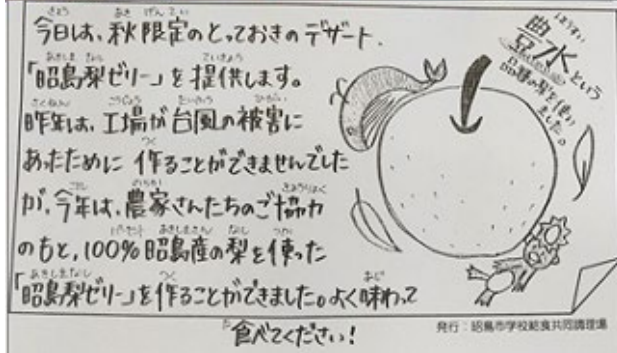 今日は、秋限定のとっておきのデザート、
「昭島梨ゼリー」を提供します。
昨年は、工場が台風の被害に
あったために作ることができませんでした
が、今年は、農家さんたちのご協力
のもと、100%昭島産の梨を使った
「昭島梨ゼリー」を作ることができました。よく味わって
食べてください!
豊水という
品種の梨を使い
ました。
発行:昭島市学校給食共同調理場